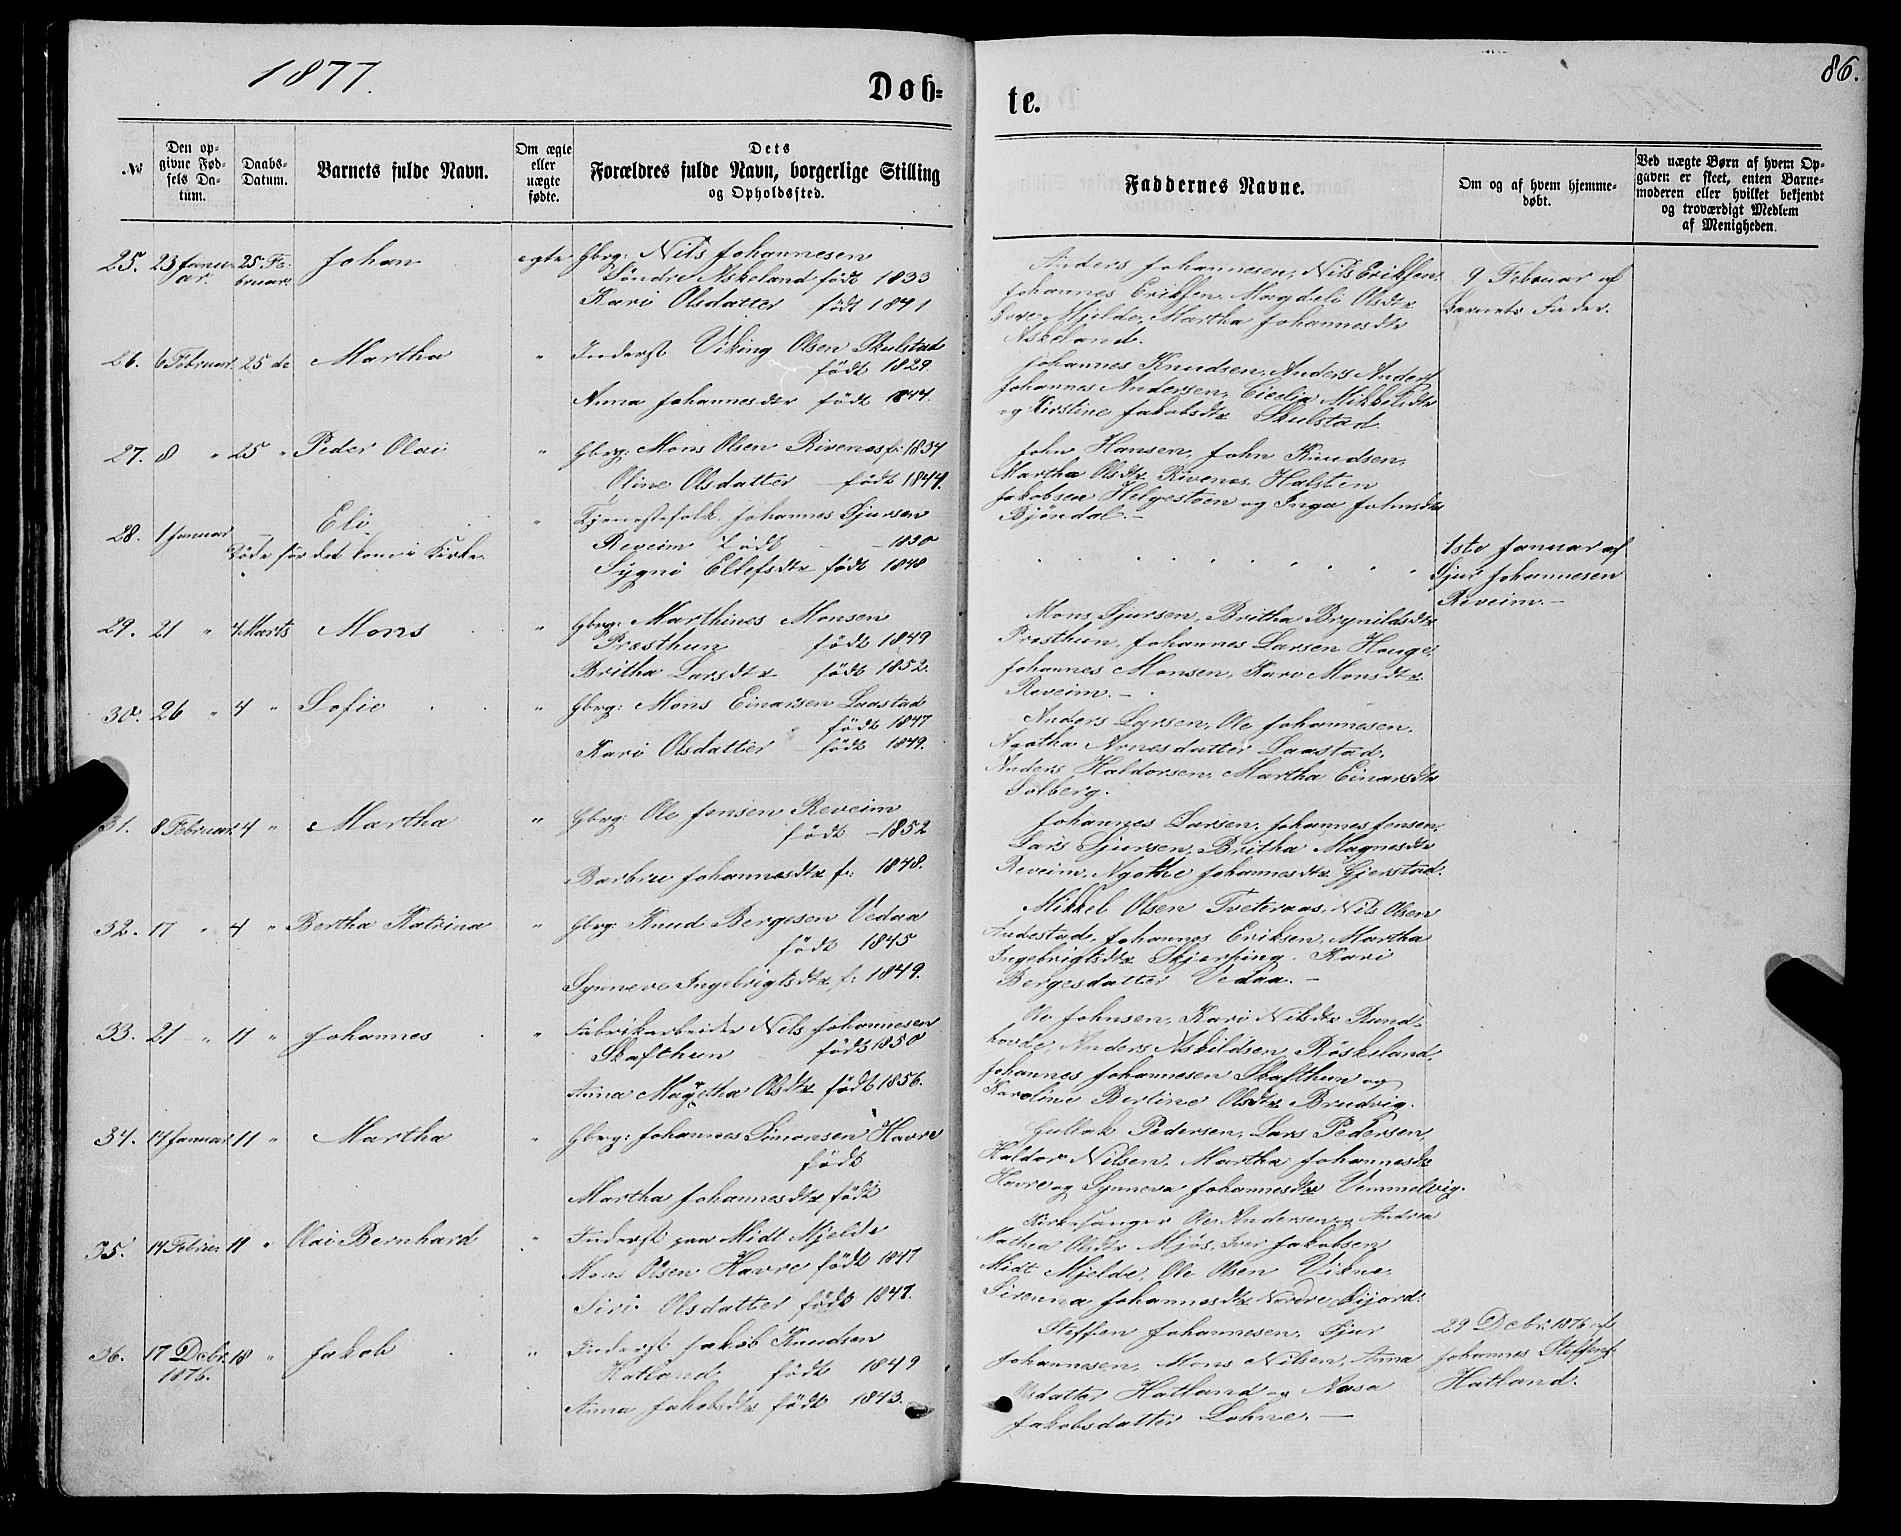 1877.
Døb-
te.
86.
№
Den op-
givne Fød-
sels Da-
tum.
Daabs-
Datum.
Barnets fulde Navn.
Om ægte
eller
uægte
fødte.
Dets
Forældres fulde Navn, borgerlige Stilling
og Opholdssted.
Faddernes Navne.
Om og af hvem hjemme-
døbt.
Ved uægte Børn af hvem Op-
gaven er skeet, enten Barne-
moderen eller hvilket bekjendt
og troværdigt Medlem
af Menigheden.
25. 23 Janu- 25 Fe- Johan egte Gbrg: Nils Johannesen
ar. bruar Söndre Askeland födt 1833
Kari Olsdatter födt 1841
Anders Johannesen, Nils Eriksen,
Johannes Eriksen, Magdeli Olsdtr
Mjelde, Martha Johannesdtr
Askeland.
9 Februar af
Barnets Fader.
26. 6 Februar 25 do Martha " Inderst Viking Olsen Skulstad
födt 1829
Anna Johannesdtr födt 1844.
Johannes Knudsen, Anders Anders
Johannes Andersen, Cicelia Mikkelsdtr
og Kirstine Jakobsdtr Skulstad.
27. 8 " 25 " Peder Olai " Gbrg: Mons Olsen Rivenes f: 1834
Oline Olsdatter födt 1844.
John Hansen, John Knudsen,
Martha Olsdtr Rivenes, Halsten
Jakobsen Helgestven og Inga Johnsdtr
Björndal. —
28. 1 Januar — Eli " Tjenestefolk Johannes Sjursen
Döde för det kom i Kirke Reveim födt — 1850
Sygni Ellefsdtr födt 1848
1ste Januar af
Sjur Johannesen
Reveim. —
29. 21 " 4 Marts Mons " Gbrg: Marthines Monsen
Præsthun födt 1849
Britha Larsdtr födt 1852.
Mons Sjursen, Britha Brynildsdtr
Præsthun, Johannes Larsen Houge,
Johannes Monsen, Kari Monsdtr
Reveim. —
30. 26 " 4 " Sofie " Gbrg: Mons Einarsen Laastad
födt 1847
Kari Olsdatter födt 1849.
Anders Larsen, Ole Johannesen,
Agatha Arnesdatter Laastad,
Anders Haldorsen, Martha Einarsdtr
Solberg.
31. 8 Februar 4 " Martha " Gbrg: Ole Jensen Reveim
födt — 1852
Barbru Johannesdtr f: 1848.
Johannes Larsen, Johannes Jensen,
Lars Sjursen, Britha Magnesdtr
Reveim, Agathe Johannesdtr Gjerstad.
32. 17 " 4 " Bertha Katrina " Gbrg: Knud Bergesen Vedaa
födt 1845
Synneve Ingebrigtsdtr f: 1849.
Mikkel Olsen Tveteraas, Nils Olsen
Andestad, Johannes Eriksen, Martha
Ingebrigtsdtr Skjerping, Kari
Bergesdatter Vedaa. —
33. 21 " 11 " Johannes " Fabrikarbeider Nils Johannesen
Skafthun födt 1850
Anna Magetha Olsdtr födt 1856.
Johnsen, Kari Nilsdtr Rund-
hovde, Anders Askildsen Röskeland,
Johannes Johannesen Skafthun og
Karoline Berline Olsdtr Brudvig.
34. 14 Januar 11 " Martha " Gbrg: Johannes Simonsen Havre
födt
Martha Johannesdtr födt
Gullak Pedersen, Lars Pedersen,
Haldor Nilsen, Martha Johannesdtr
Havre og Synneva Johannesdtr Vemmelvig.
35. 14 Februar 11 " Olai Bernhard " Inderst paa Midt Mjelde
Mons Olsen Havre födt 1847
Siri Olsdatter födt 1847.
Kirkesanger Ole Andersen, Andrea
Mathea Olsdtr Mjös, Iver Jakobsen
Midt Mjelde, Ole Olsen Vikne,
Sirenna Johannesdtr Nordre
36. 17 Decbr 18 " Jakob " Inderst Jakob Knudsen
1876. Hatland födt 1849
Anna Jakobsdtr födt 1843.
Steffen Johannesen, Sjur
Johannesen, Mons Nilsen, Anna
Olsdatter Hatland og Aasa
Jakobsdatter Lohne. —
29 Decbr. 1876 af
Johannes Steffens.
Hatland.